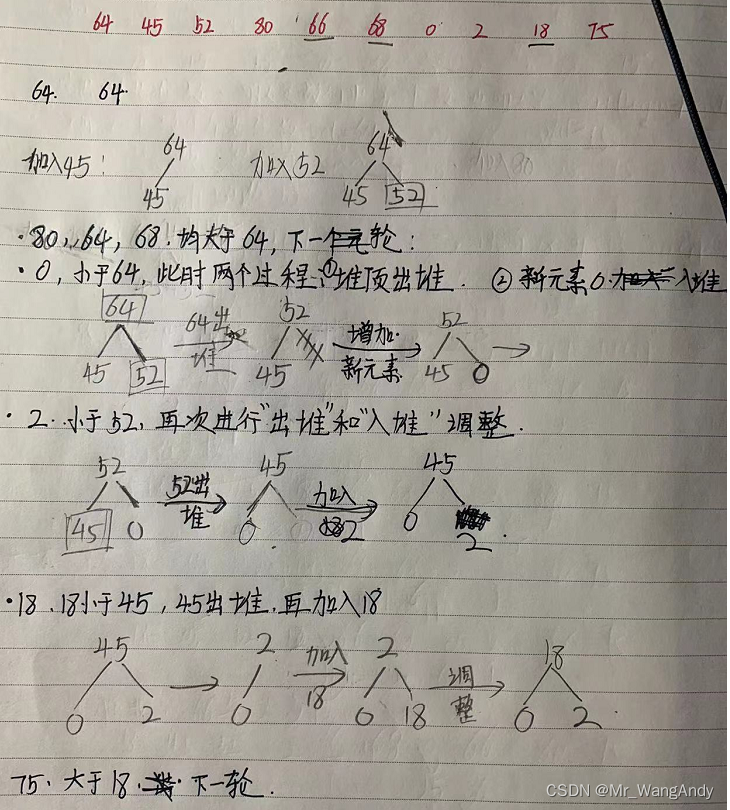 64 45 52 80 66 68 0 2 18 75
64. 64.
加入45: 64 加入52 64
45 45 52
·80,,64, 68.均大于64,下一轮:
·0,小于64,此时两个过程:①堆顶出堆. ②新元素0.入堆
64 64出堆 52 增加.新元素 52
45 52 45 45 0
·2.小于52,再次进行"出堆"和"入堆"调整.
52 52出堆 45 加入2 45
45 0 0 0 2
·18.18小于45,45出堆.再加入18
45 2 加入18 2 调整 18
0 2 0 0 18 0 2
75.大于18.下一轮.
CSDN @Mr_WangAndy